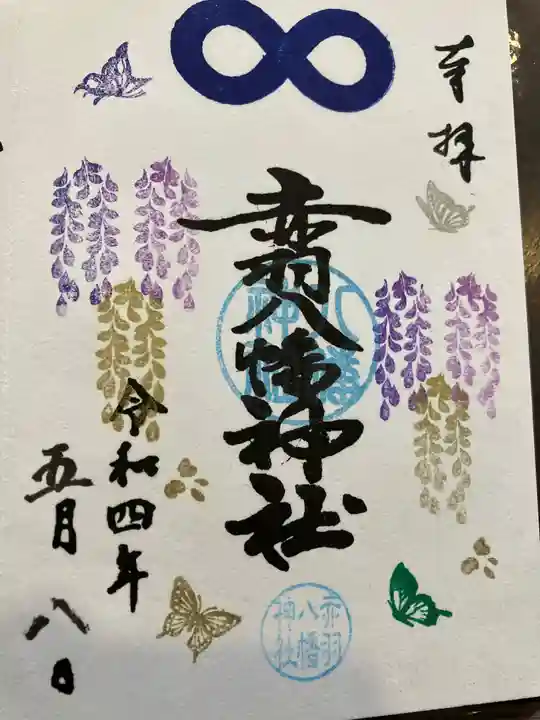 奉拝
赤羽八幡神社
八幡
神社
赤羽
八幡
神社
令和四年
五月八日